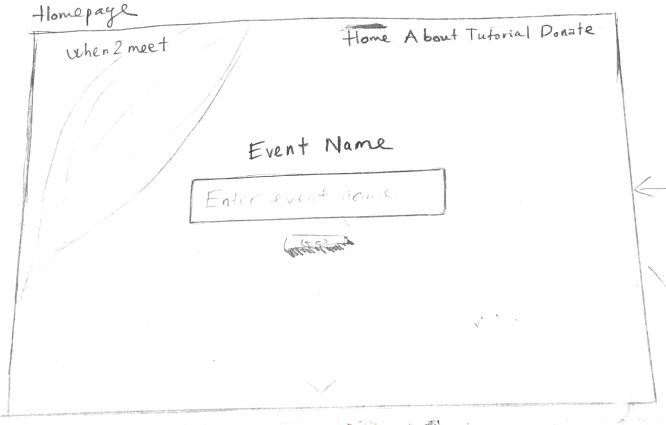 Homepage
when2meet
Home About Tutorial Donate
Event Name
Enter event name